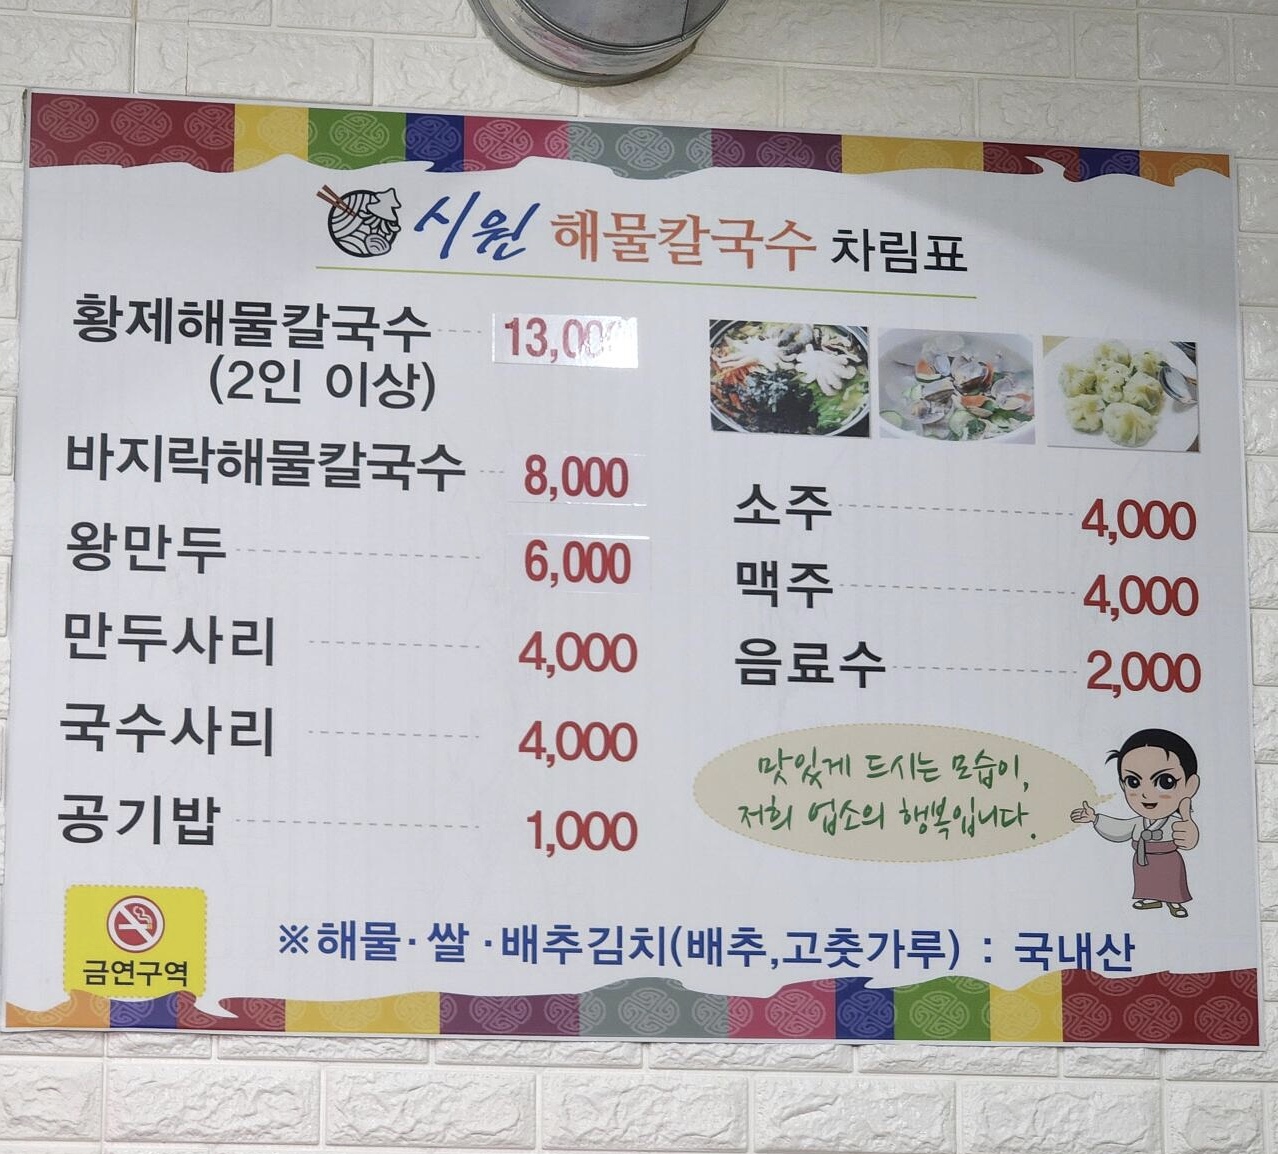 시원 해물칼국수 차림표
황제해물칼국수 13,000
(2인 이상)
바지락해물칼국수 8,000
왕만두 6,000
만두사리 4,000
국수사리 4,000
공기밥 1,000
소주 4,000
맥주 4,000
음료수 2,000
맛있게 드시는 모습이,
저희 업소의 행복입니다.
금연구역
※해물·쌀·배추김치(배추,고춧가루) : 국내산